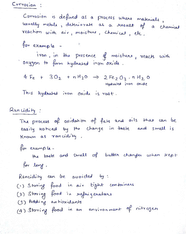 Corrosion :
Corrosion is defined as a process where materials,
usually metals, deteriorate as a result of a chemical
reaction with air, moisture, chemical, etc.
for example -
iron, in the presence of moisture, reacts with
oxygen to form hydrated iron oxide.
4 Fe + 3O₂ + nH₂O → 2 Fe₂O₃ . nH₂O
hydrated iron oxide
This hydrated iron oxide is rust.
Rancidity :
The process of oxidation of fats and oils that can be
easily noticed by the change in taste and smell is
known as rancidity.
for example:
the taste and smell of butter changes when kept
for long.
Rancidity can be avoided by :
(1) Storing food in air tight containers
(2) Storing food in refrigerators
(3) Adding antioxidants
(4) Storing food in an environment of nitrogen